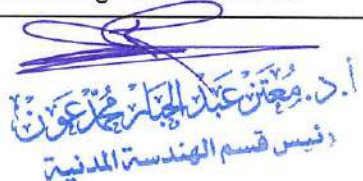 أ. د. معتز عبد الجبار محمد عون
رئيس قسم الهندسة المدنية